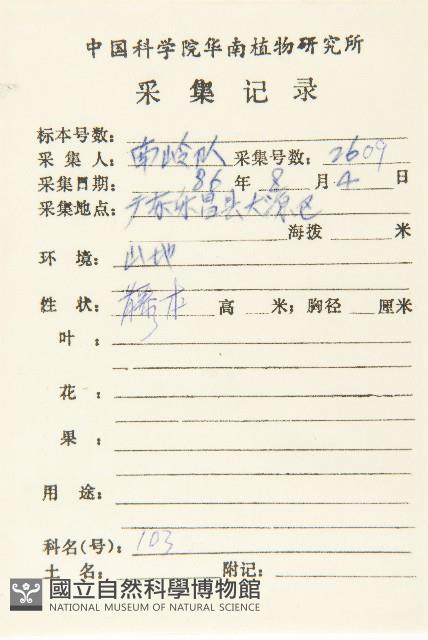 中国科学院华南植物研究所
采集记录
标本号数:
采集人: 南岭队 采集号数: 2609
采集日期: 86 年 8 月 4 日
采集地点: 广东乐昌县大源
海拨 米
环境: 山地
性状: 藤本 高 米; 胸径 厘米
叶:
花:
果:
用途:
科名(号): 103
土名: 附记:
國立自然科學博物館
NATIONAL MUSEUM OF NATURAL SCIENCE